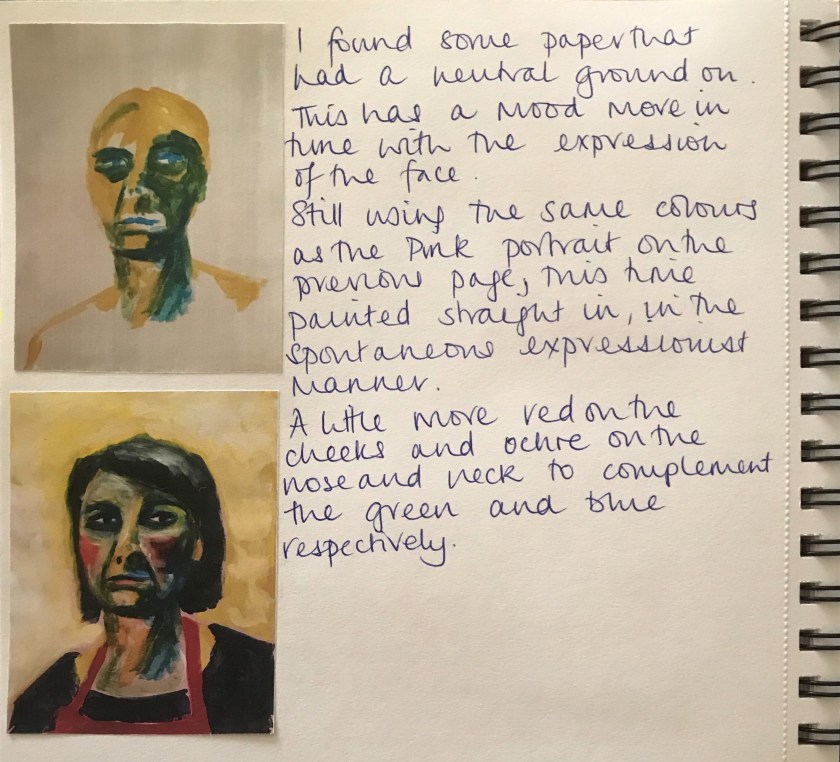 I found some paper that
had a neutral ground on.
This has a mood more in
tune with the expression
of the face.
Still using the same colours
as the Pink portrait on the
previous page, this time
painted straight in, in the
spontaneous expressionist
manner.
A little more red on the
cheeks and ochre on the
nose and neck to complement
the green and blue
respectively.